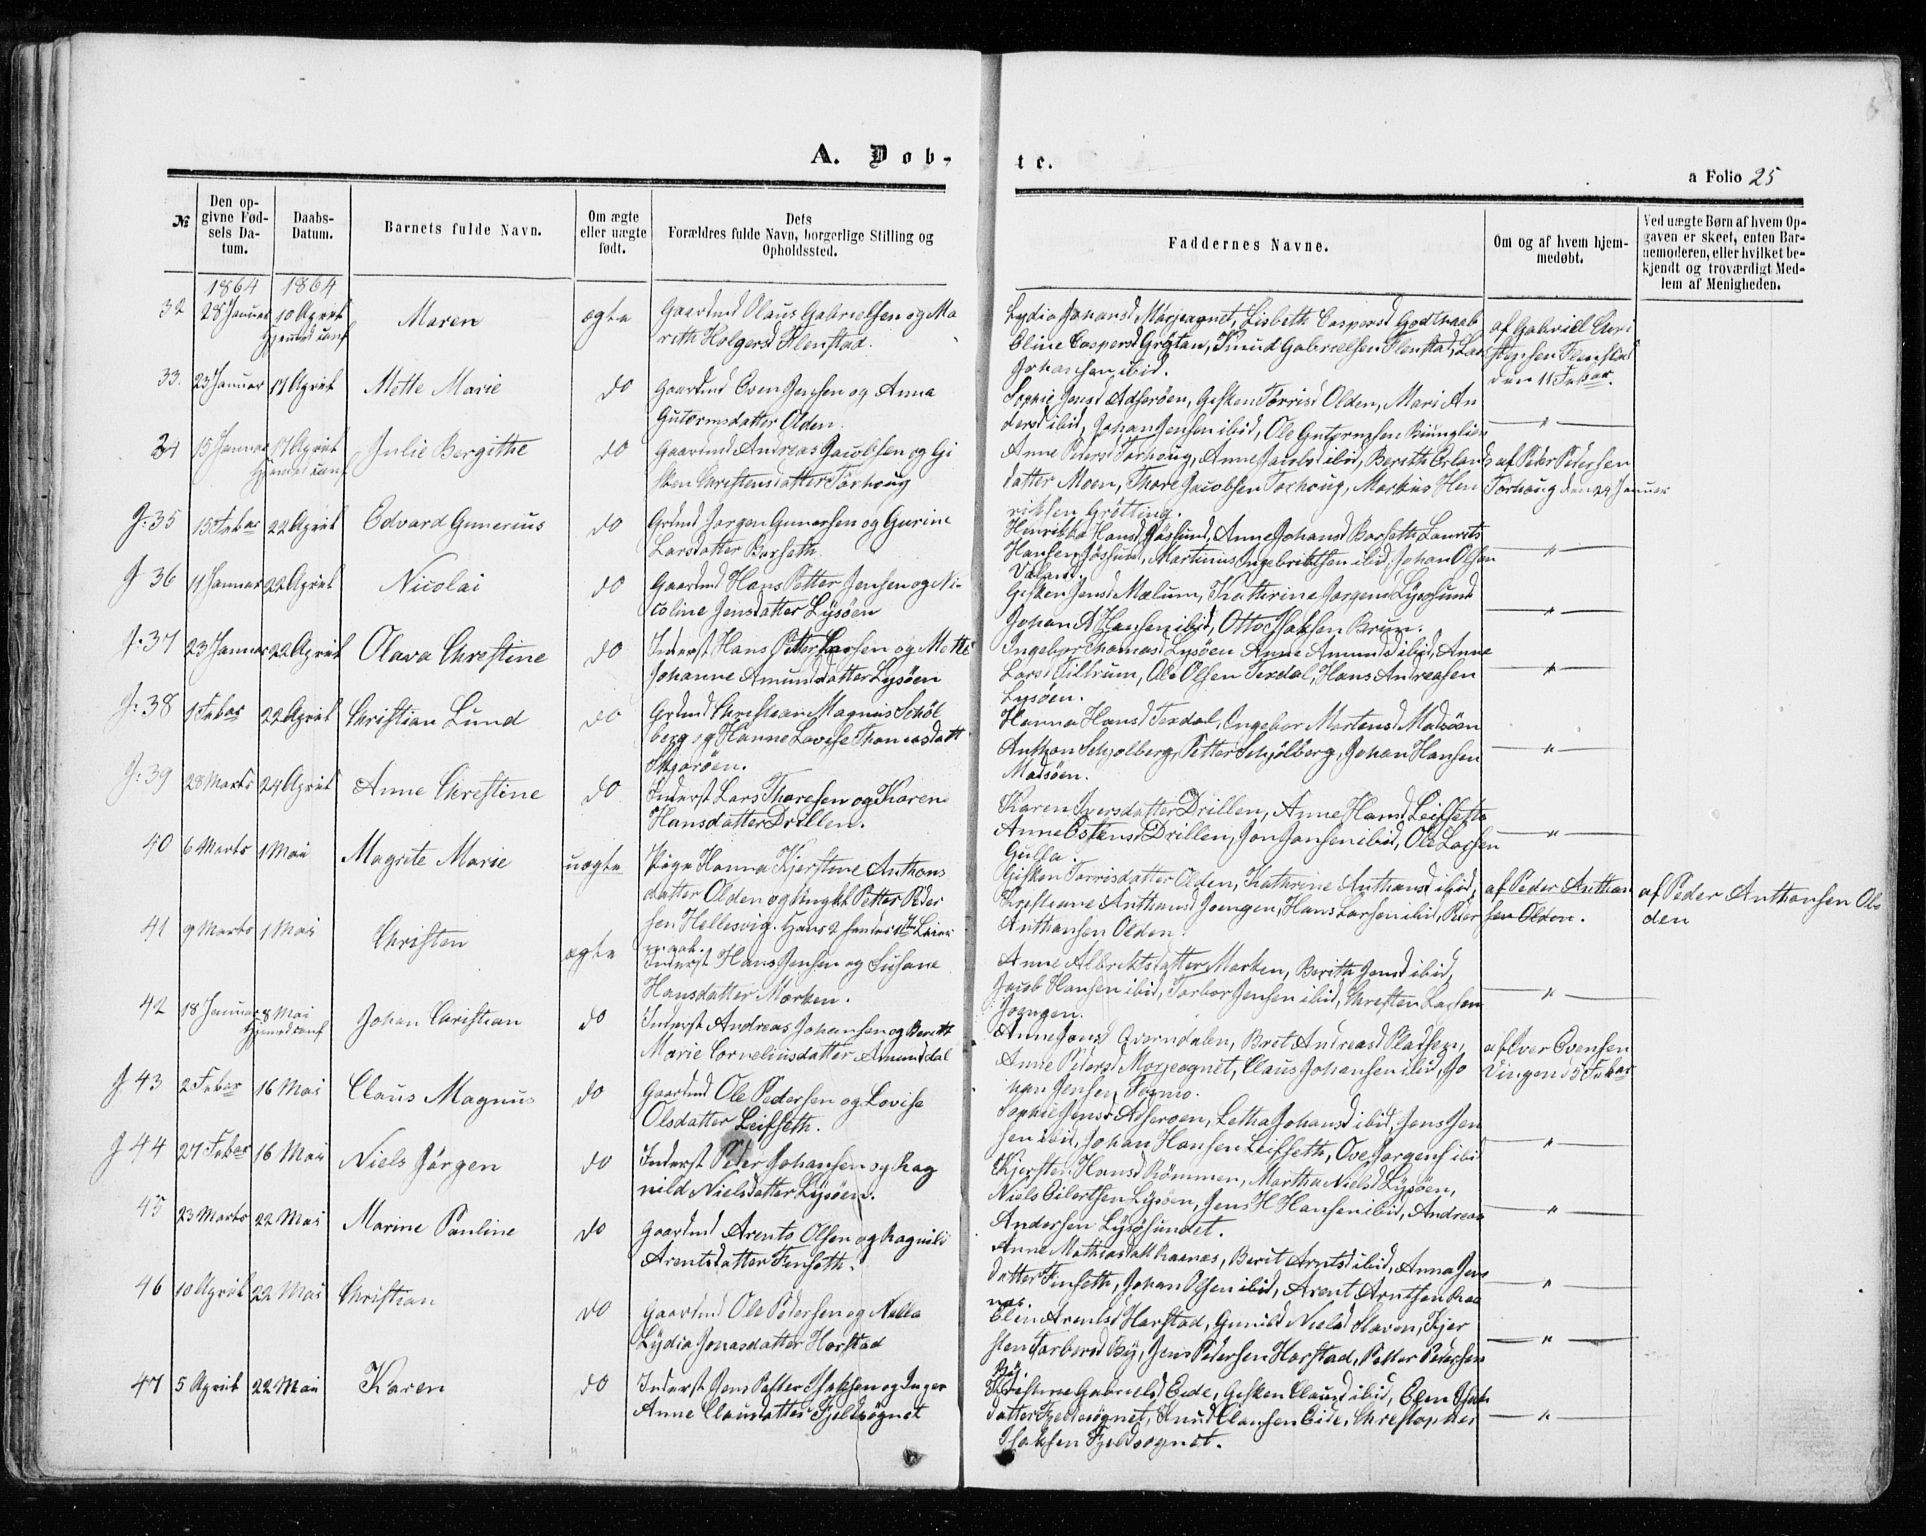 A. Døb-
te.
a Folio 25
№
Den op-
givne Fød-
sels Da-
tum.
Daabs-
Datum.
Barnets fulde Navn.
Om ægte
eller uægte
født.
Dets
Forældres fulde Navn, borgerlige Stilling og
Opholdssted.
Faddernes Navne.
Om og af hvem hjem-
medøbt.
Ved uægte Børn af hvem Op-
gaven er skeet, enten Bar-
nemoderen, eller hvilket be-
kjendt og troværdigt Med-
lem af Menigheden.
1864 1864
32 28 Januar 10 April Maren ægte Gaardmd Olaus Gabrielsen og Ma
reth Holgersd Flenstad.
Lydia Jonasd Morjeagnet, Lisbeth Caspersd Godthaab
Eline Caspersd Grøtan, Knud Gabrielsen Flenstad, Lars
Johansen ibid.
af Gabriel Chri
stensen Flenstad
den 11 Febar.
33. 23 Januar 17 April Mette Marie do Gaardmd Even Jensen og Anna
Gutormsdatter Olden.
Sophie Jensd Adserøen, Gisken Torrisd Olden, Mari An
dersd ibid, Johan Jensen ibid, Ole Gutormsen
— " —
34 15 Januar 17 April Julie Bergithe do Gaardmd Andreas Jacobsen og Gi
sken Christensdatter Torhoug
Anne Pedersd Torhoug, Anne Jacobsd ibid, Bereth Erlands
datter Moen, Thore Jacobsen Torhoug, Markus Hen
riksen Grøtting.
af Peder Pedersen
Torhoug den 24 Januar
J. 35 15 Febar 22 April Edvard Gunerius do Grdmd Jørgen Gunersen og Gurine
Larsdatter Borseth.
Henrikka Hansd Jøssund, Anne Johansd Borseth Laurits
Hansen Jøssund, Martinus Ingebrigtsen ibid, Johan Olsen
Valand.
— " —
J 36 11 Januar 22 April Nicolai do Gaardmd Hans Petter Jensen og Ni-
coline Jensdatter Lysøen
Gisken Jensd Mælum, Kathrine Jørgensd Lysøsund
Johan A Hansen ibid, Otto Isaksen Brun.
— " —
J. 37 23 Januar 22 April Olava Christine do Inderst Hans Petter Larsen og Mette
Johanne Amundsdatter Lysøen
Ingebor Thomasd Lysøen Anne Amundsd ibid, Anne
Larsd Tiltrum, Ole Olsen Terdal, Hans Andreasen
Lysøen.
— " —
J. 38 1 Febar 22 April Christian Lund do Grdmd Christian Magnus Schøl
berg og Hanne Lovise Thomasdatt
Skjærøen.
Hanna Hansd Terdal, Ingebor Mortensd Madsøen
Anthon Schjølberg, Petter Schjølberg, Johan Hansen
Madsøen.
— " —
J. 39 28 Marts 24 April Anne Christine do Inderst Lars Thoresen og Karen
Hansdatter Drillen.
Karen Iversdatter Drillen, Anne Hansd Leifseth
Anne Estensd Drillen, Jon Jonsen ibid, Ole Larsen
Gulla.
— " —
40 6 Marts 1 Mai Magrete Marie uægte Pige Hanna Kjerstine Anthons
datter Olden og Ungkl Petter Peder
sen Hellesvig. Hans 2 hendes 1ste Leier
maal.
Gisken Torrisdatter Olden, Kathrine Anthonsd ibid,
Kristiane Anthonsd Joengen, Hans Larsen ibid, Peder
Anthonsen Olden.
af Peder Anthon
sen Olden.
af Peder Anthonsen Ol
den
41 9 Marts 1 Mai Christen ægte Inderst Hans Jensen og Susane
Hansdatter Morken.
Anne Albriktsdatter Morken, Berith Jensd ibid,
Jacob Hansen ibid, Torber Jensen ibid, Christen Larsen
Joengen.
— " —
42 18 Januar 8 Mai Johan Christian do Inderst Andreas Johansen og Bereth
Marie Corneliusdatter Amunddal
Anne Jonsd Overndalen, Beret Andreasd Pladsen,
Anne Pedersd Morjeagnet, Claus Johansen ibid, Jo
han Jensen Tormo.
af Iver Evensen
Vingen d 5 Febar
J 43 2 Febar 16 Mai Claus Magnus do Gaardmd Ole Pedersen og Lovise
Olsdatter Leifseth.
Sophie Jensd Adserøen, Letha Johansd ibid, Jens Jen
sen ibid, Johan Hansen Leifseth, Ove Jørgens ibid
— " —
J 44 27 Febar 16 Mai Niels Jørgen do Inderst Peder Johansen og Rag
nild Nielsdatter Lysøen.
Kjersten Hansd Rømmen, Martha Nielsd Lysøen,
Niels Eilertsen Lysøen, Jens H Hansen ibid, Andreas
Andersen Lysøsundet.
— " —
45 23 Marts 22 Mai Marine Pauline do Gaardmd Arents Olsen og Ragnild
Arentsdatter Finseth.
Anne Mathiasdatt Raanæs, Berit Arntsd ibid, Anna Jens
datter Finseth, Johan Olsen ibid, Arent Arntsen Raa
næs.
— " —
46 10 April 22 Mai Christian do Gaardmd Ole Pedersen og Nella
Lydia Jonasdatter Harstad
Elen Arentsd Harstad, Gunild Nielsd Haven, Kjer
sten Torbersd By, Jens Pedersen Harstad, Petter Pedersen
By.
— " —
47 5 April 22 Mai Karen do Inderst Jens Petter Isaksen og Inger
Anne Clausdatter Fjeldsøgnet
Kristine Gabrielsd Eide, Gisken Clausd ibid, Elen Isaks
datter Fjeldsøgnet, Knud Clausen Eide, Christopher
Isaksen Fjeldsøgnet.
— " —